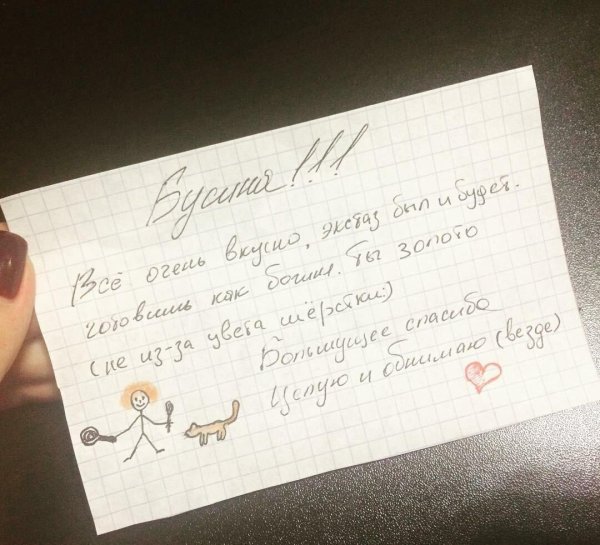 Бусина!!!
Всё очень вкусно, экстаз был и будет.
Готовишь как богиня. Ты золото
(не из-за цвета шёрстки:)
Большущее спасибо
Целую и обнимаю (везде)